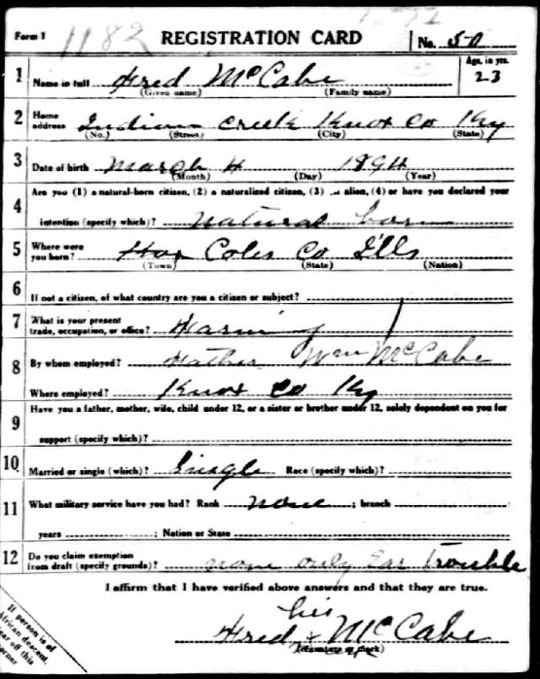 Form 1 1182 REGISTRATION CARD No. 50
1 Name in full Fred McCabe Age, in yrs. 23
(Given name) (Family name)
2 Home address Indian Creek Knox Co Ky
(No.) (Street) (City) (State)
3 Date of birth March 4 1894
(Month) (Day) (Year)
4 Are you (1) a natural-born citizen, (2) a naturalized citizen, (3) alien, (4) or have you declared your
intention (specify which)? natural born
5 Where were you born? Coles Co Ills
(Town) (State) (Nation)
6 If not a citizen, of what country are you a citizen or subject?
7 What is your present trade, occupation, or office? Farming
8 By whom employed? Father Wm McCabe
Where employed? Knox Co Ky
9 Have you a father, mother, wife, child under 12, or a sister or brother under 12, solely dependent on you for
support (specify which)?
10 Married or single (which)? Single Race (specify which)?
11 What military service have you had? Rank none ; branch
years ; Nation or State
12 Do you claim exemption from draft (specify grounds)? none only Ear Trouble
I affirm that I have verified above answers and that they are true.
his
Fred x McCabe
mark
(Signature or mark)
If person is of
African descent,
tear off this
corner